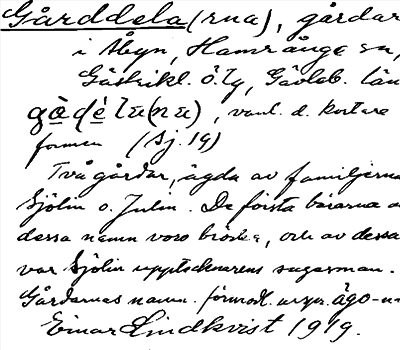 Gårddela(rna), gårdar
i Åbyn, Hamrånge sn,
Gästrikl. ö. tg, Gävleb. län
gà̱dè̱la(na), vanl. d. kortare
formen (Sj. 19)
Två gårdar, ägda av familjerna
Sjölin o. Julin. De första bärarna a
dessa namn voro bröder, och av dessa
var Sjölin upptecknarens sagesman.
Gårdarnas namn. förmodl. urspr. ägo-n
Einar Lindkvist 1919.